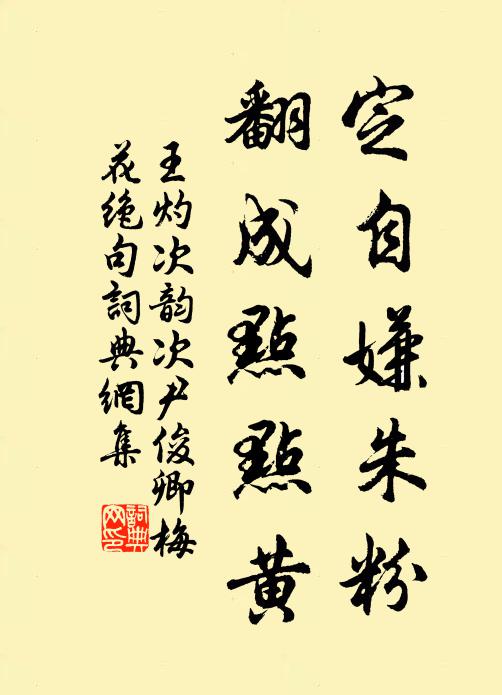 定自嫌朱粉
翻成點點黄
王灼次韵次尹俊卿梅
花絶句詞典網集
詞典
网印